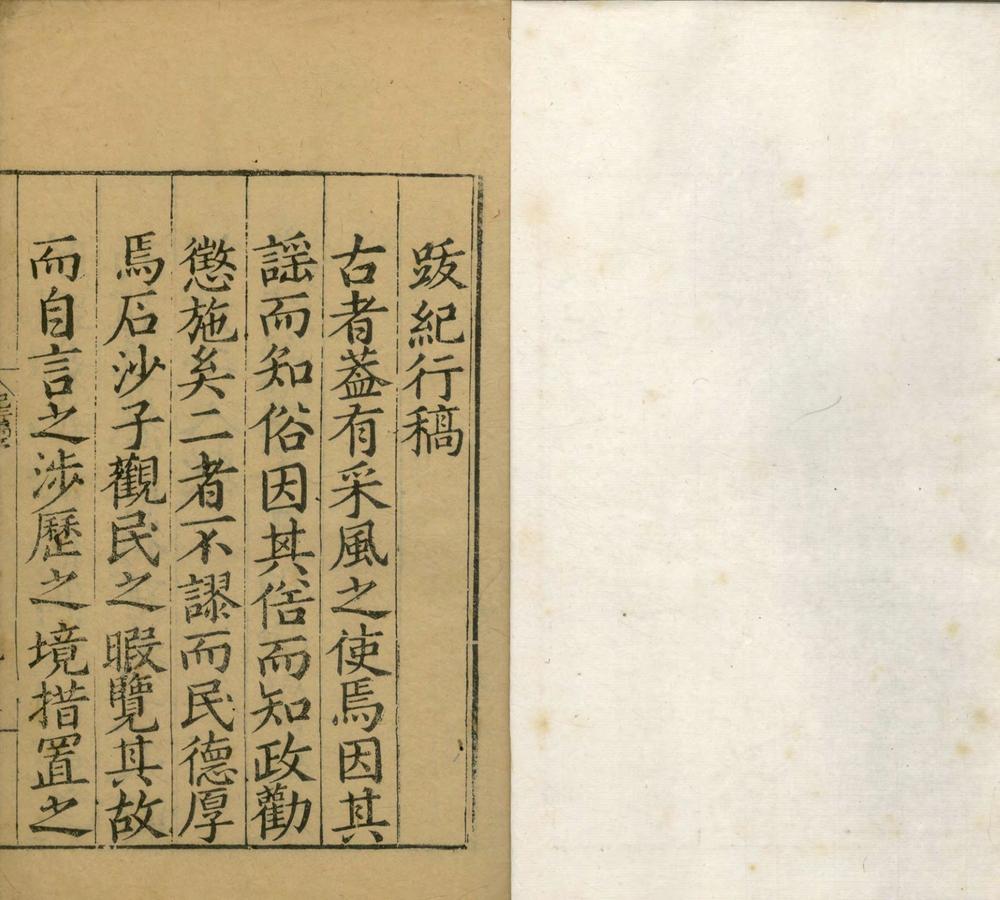 跋紀行稿
古者葢有采風之使焉因其
謡而知俗因其俗而知政勸
懲施矣二者不謬而民德厚
焉石沙子觀民之暇覽其故
而自言之涉歷之境措置之